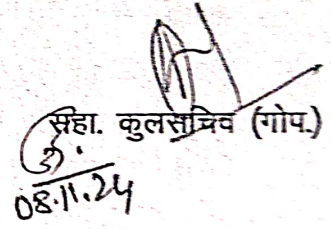 सहा. कुलसचिव (गोप.)
08.11.24